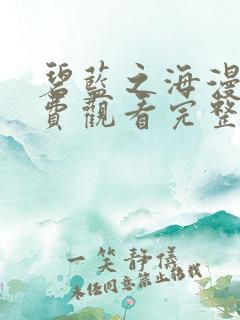 碧藍之海漫
費觀看完整
一笑靜儀
未经同意禁止转载